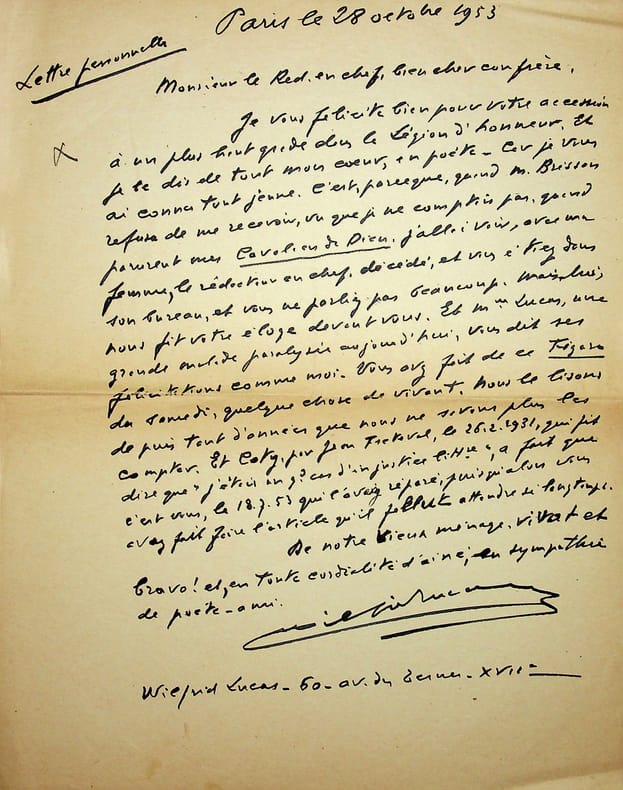 Paris le 28 octobre 1953
Lettre personnelle
Monsieur le Red. en chef, bien cher confrère,
Je vous félicite bien pour votre accession
à un plus haut grade dans la Légion d'honneur. Et
je le dis de tout mon coeur, en poète - Car je vous
ai connu tout jeune. C'est, parceque, quand M. Brisson
refusa de me recevoir, vu que je ne comptais pas, quand
parurent mes Cavaliers de Dieu, j'allai voir, avec ma
femme, le rédacteur en chef, décédé, et vous étiez dans
son bureau, et vous ne parliez pas beaucoup. Mais, lui,
nous fit votre éloge devant vous. Et Mme Lucas, une
grande malade paralysée aujourd'hui, vous dit ses
félicitations comme moi. Vous avez fait de ce Figaro
du samedi, quelque chose de vivant. Nous le lisons
depuis tant d'années que nous ne savons plus les
compter. Et Coty, par Jean, le 26.2.1931, qui fit
dire que "j'étais un gd cas d'injustice litt.re", a fait que
c'est vous, le 18.7.53 qui l'avez réparé, puisqu'alors vous
avez fait faire l'article qu'il fallut attendre si longtemps.
De notre vieux ménage, vivat et
bravo! et, en toute cordialité d'aîné, en sympathie
de poète-ami.
Wilfrid Lucas
Wilfrid Lucas - 60 - av. des Ternes - XVIIe